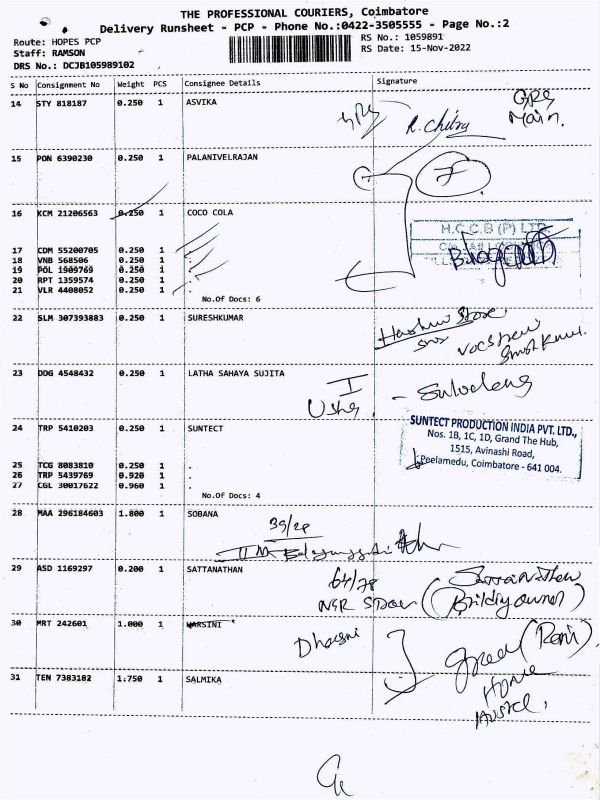 THE PROFESSIONAL COURIERS, Coimbatore
Delivery Runsheet - PCP - Phone No.:0422-3505555 - Page No.:2
Route: HOPES PCP
Staff: RAMSON
DRS No.: DCJB105989102
RS No.: 1059891
RS Date: 15-Nov-2022
S No Consignment No Weight PCS Consignee Details Signature
14 STY 818187 0.250 1 ASVIKA
R. Chitra
GRS
Main.
15 PON 6390230 0.250 1 PALANIVELRAJAN
16 KCM 21206563 0.250 1 COCO COLA
H.C.C.B (P) LTD.
17 CDM 55200705 0.250 1 .
18 VNB 568506 0.250 1 .
19 POL 1909769 0.250 1 .
20 RPT 1359574 0.250 1 .
21 VLR 4408052 0.250 1 .
No.Of Docs: 6
22 SLM 307393883 0.250 1 SURESHKUMAR
23 DDG 4548432 0.250 1 LATHA SAHAYA SUJITA
I
Usha
24 TRP 5410203 0.250 1 SUNTECT
SUNTECT PRODUCTION INDIA PVT. LTD.,
Nos. 1B, 1C, 1D, Grand The Hub,
1515, Avinashi Road,
Peelamedu, Coimbatore - 641 004.
25 TCG 8083810 0.250 1 .
26 TRP 5439769 0.920 1 .
27 CGL 30017622 0.960 1 .
No.Of Docs: 4
28 MAA 296184603 1.800 1 SOBANA
39/28
29 ASD 1169297 0.200 1 SATTANATHAN
64/78
(Building owner)
30 MRT 242601 1.000 1 VARSINI
Dharsni
(Rani)
31 TEN 7383182 1.750 1 SALMIKA
Home